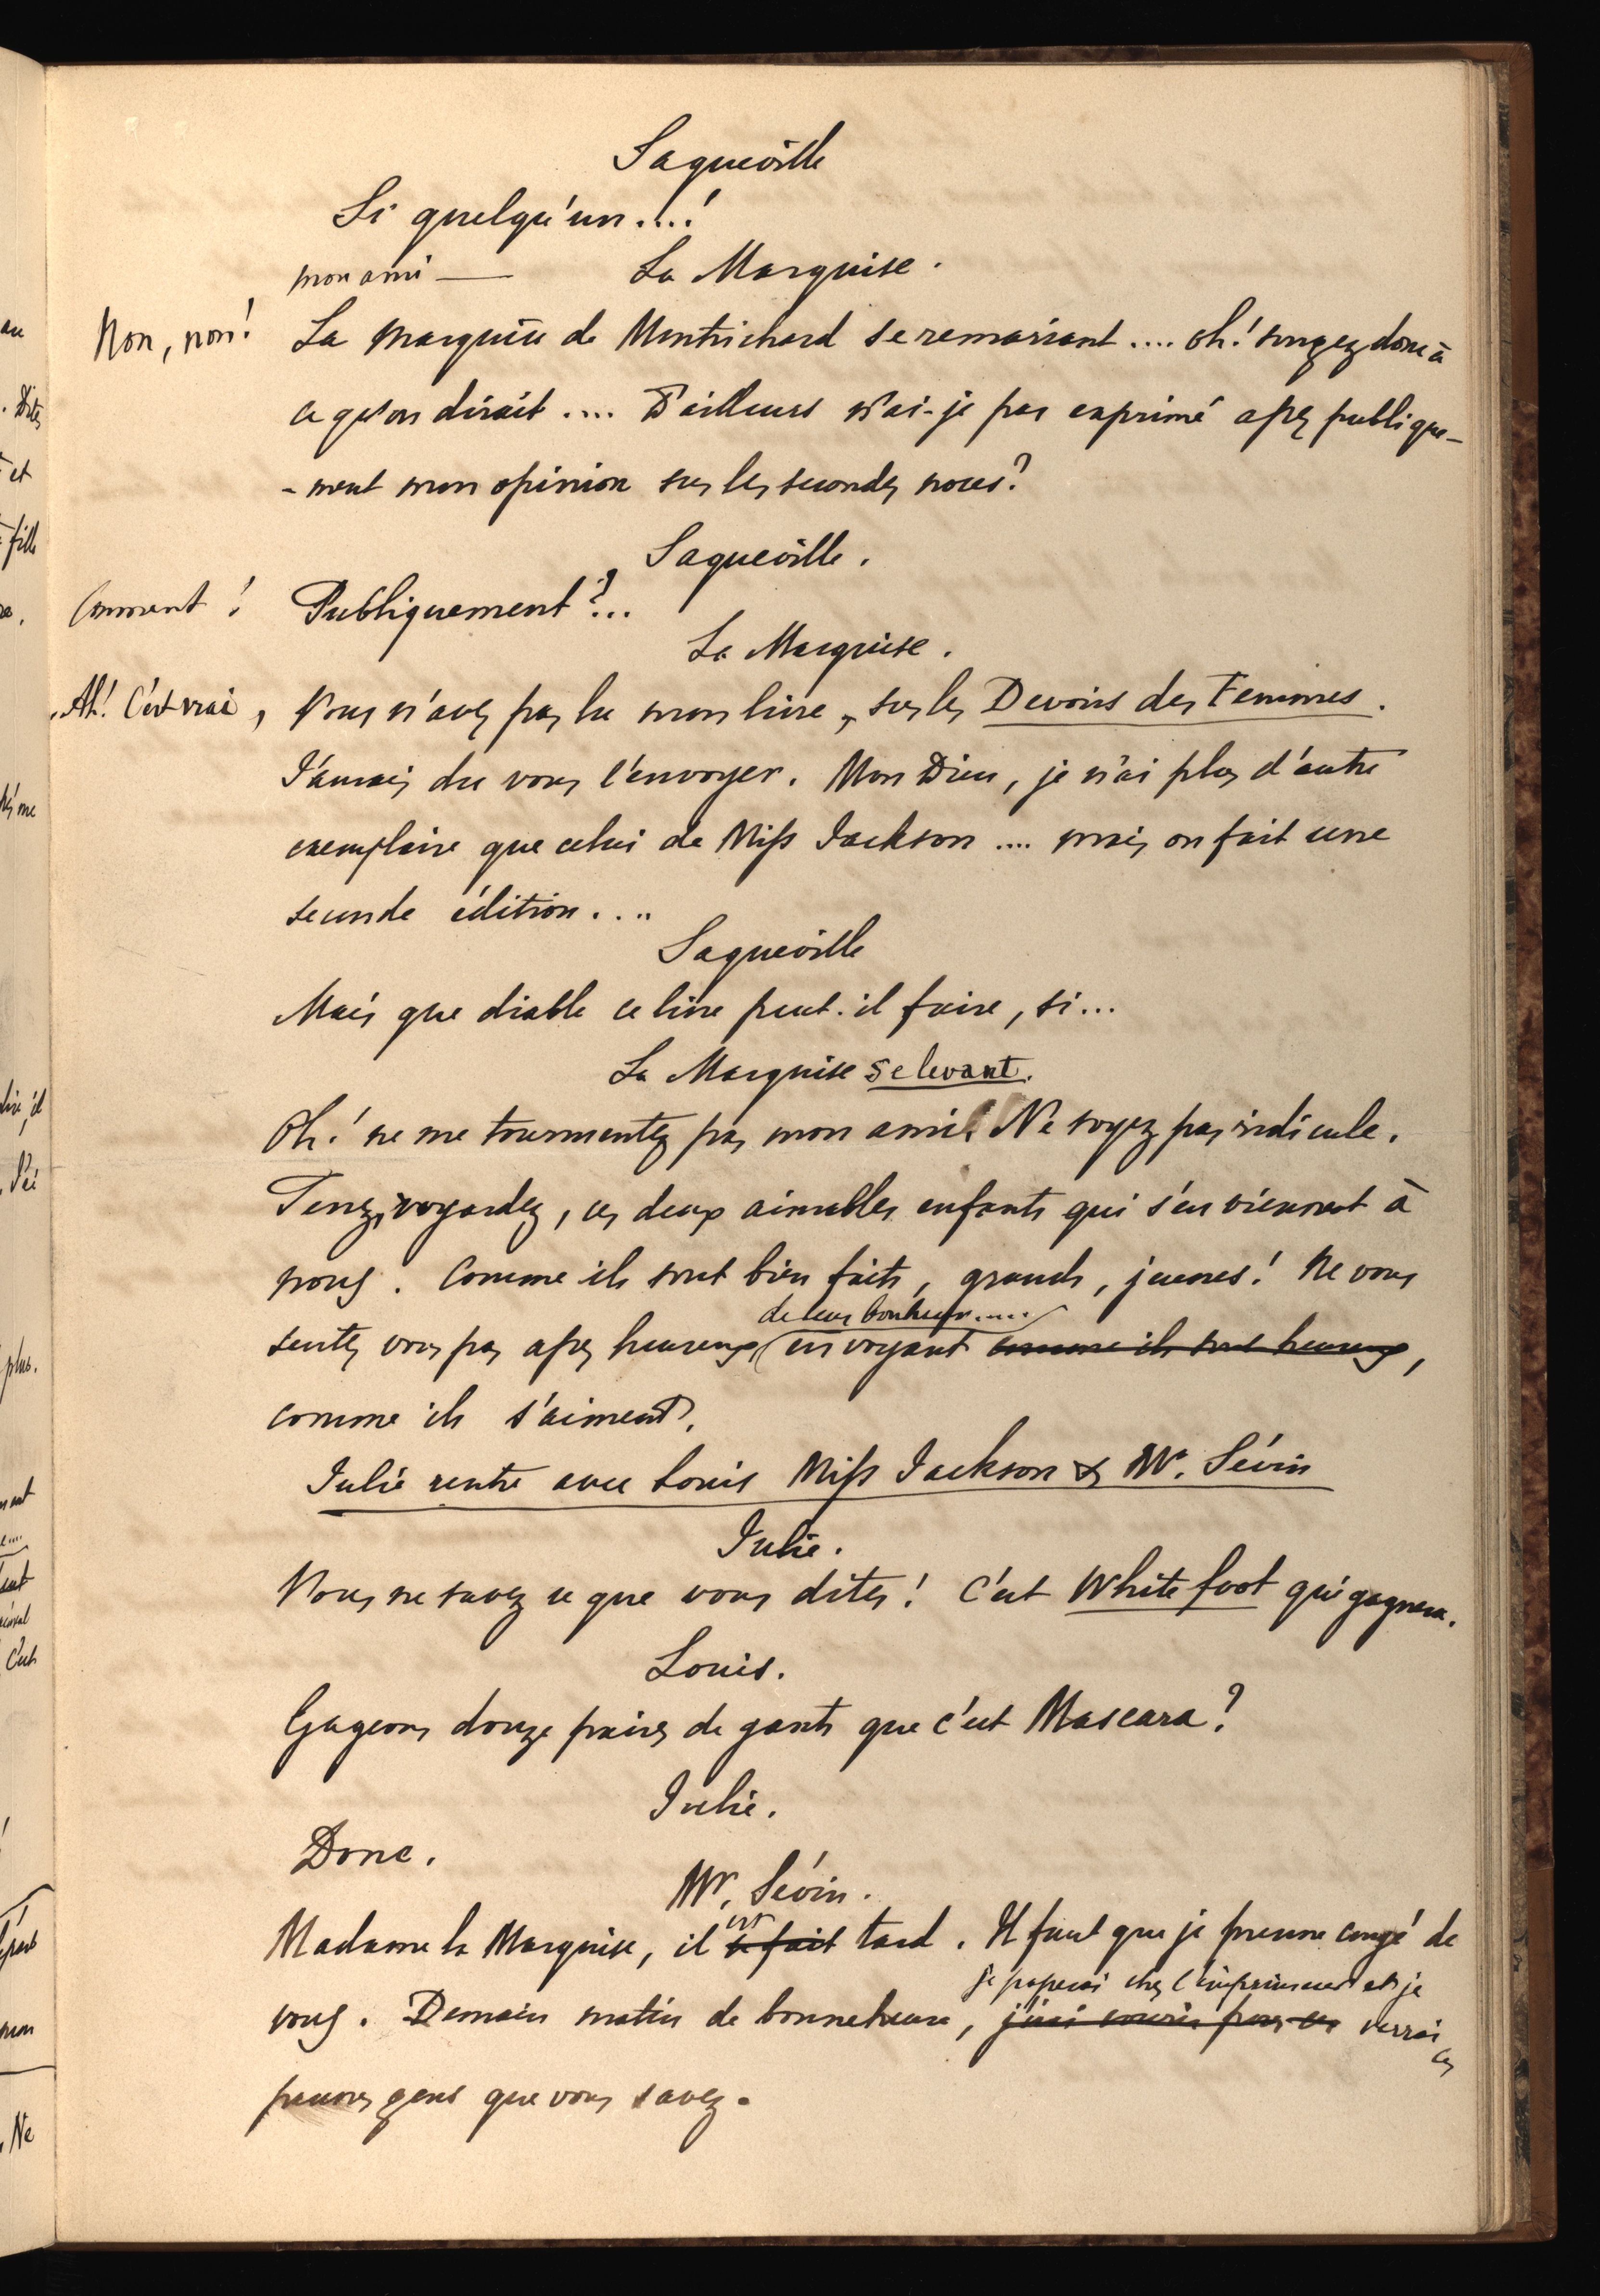 Saqueville
Si quelqu'un....!
mon ami — La Marquise.
Non, non! La Marquise de Montrichard se remariant .... oh! songez donc à
ce qu'on dirait .... D'ailleurs n'ai-je pas exprimé assez publique-
-ment mon opinion sur les secondes noces?
Saqueville.
Comment! Publiquement?...
La Marquise.
Ah! C'est vrai, Vous n'avez pas lu mon livre, sur les Devoirs des Femmes.
J'aurais du vous l'envoyer. Mon Dieu, je n'ai plus d'autre
exemplaire que celui de Miss Jackson .... mais on fait une
seconde édition....
Saqueville
Mais que diable ce livre peut-il faire, si...
La Marquise se levant.
Oh! ne me tourmentez pas mon ami! Ne soyez pas ridicule.
Tenez, regardez, ces deux aimables enfants qui s'en viennent à
nous. Comme ils sont bien faits, grands, jeunes! Ne vous
de leur bonheur.....
sentez vous pas assez heureux, en voyant comme ils sont heureux,
comme ils s'aiment.
Julie rentre avec Louis Miss Jackson & Mr. Sévin
Julie.
Vous ne savez ce que vous dites! C'est White foot qui gagnera.
Louis.
Gageons douze paires de gants que c'est Mascara?
Julie.
Donc.
Mr. Sévin.
est
Madame la Marquise, il se fait tard. Il faut que je prenne congé de
je passerai chez l'imprimeur et je
vous. Demain matin de bonne heure, j'irai courir pour ces verrai
ces
pauvres gens que vous savez.
an
. Dites
et
fille
me
dire, il
plus.
C'est
mon
. Ne